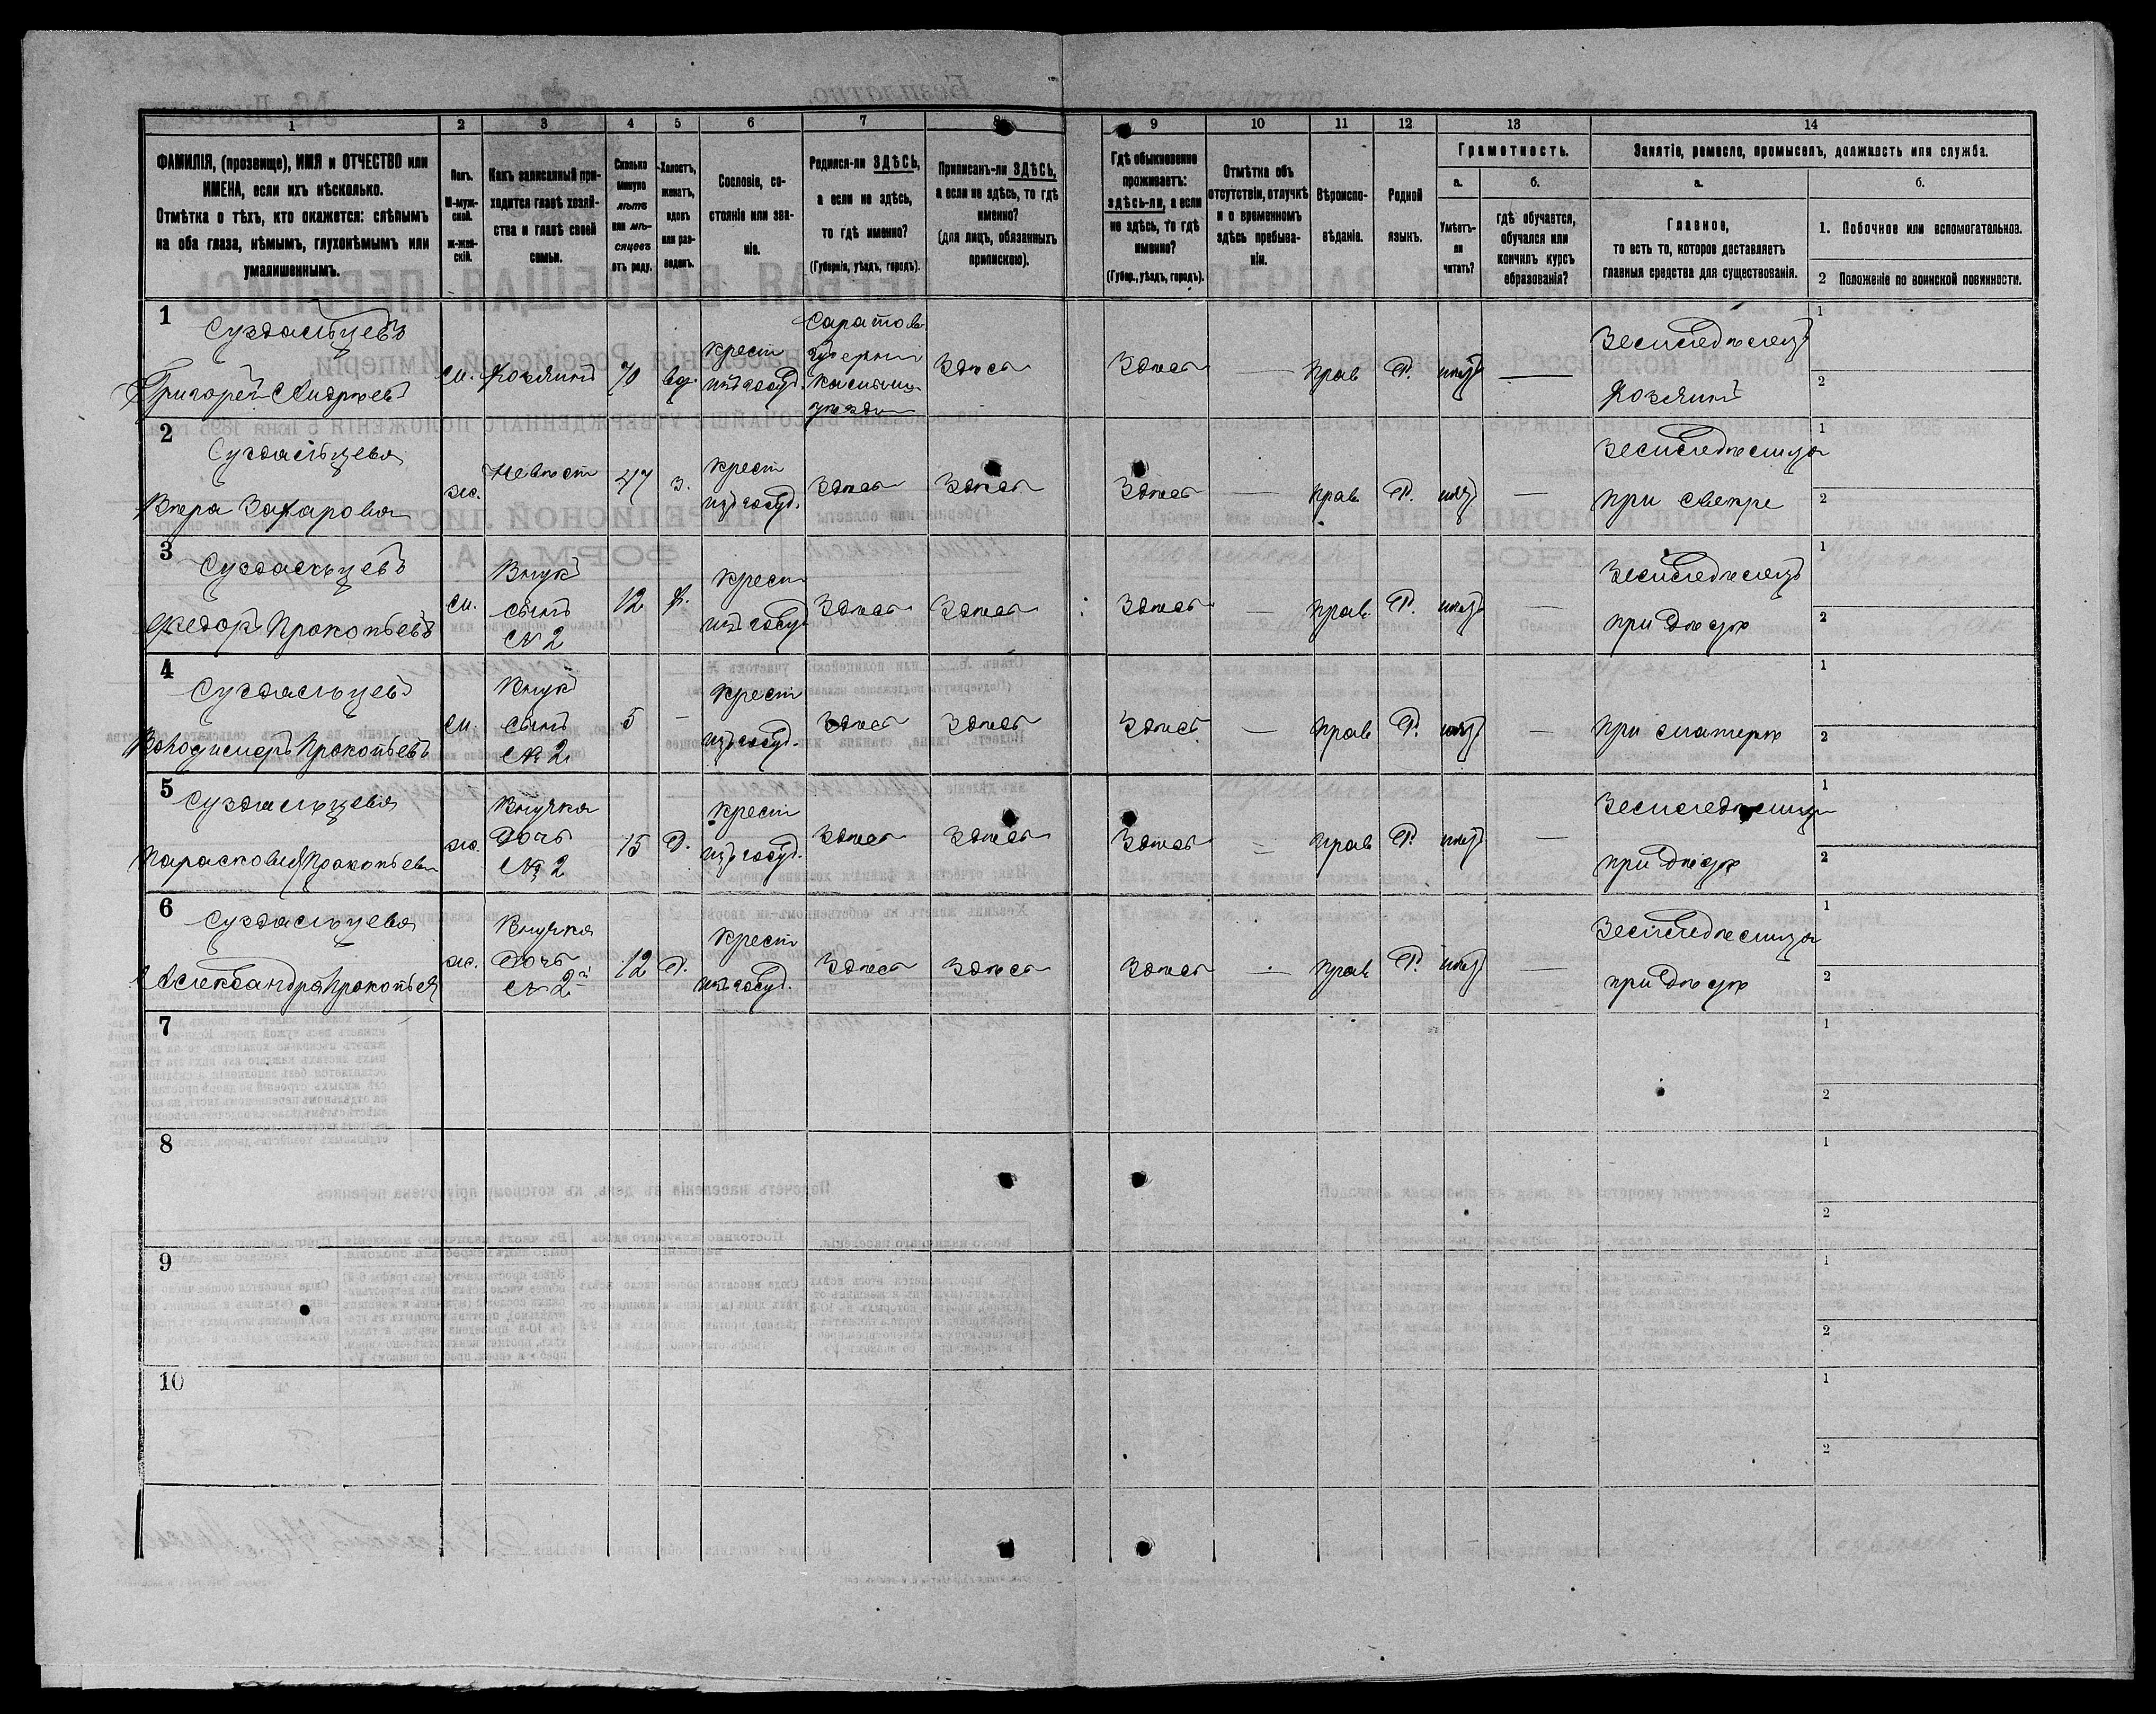 1 2 3 4 5 6 7 8 9 10 11 12 13 14
ФАМИЛІЯ, (прозвище), ИМЯ и ОТЧЕСТВО или
ИМЕНА, если ихъ нѣсколько.
Отмѣтка о тѣхъ, кто окажется: слѣпымъ
на оба глаза, нѣмымъ, глухонѣмымъ или
умалишеннымъ.
Полъ.
М-муж-
ской.
ж-жен-
скій.
Какъ записанный при-
ходится главѣ хозяй-
ства и главѣ своей
семьи.
Сколько
минуло
лѣтъ
или мѣ-
сяцевъ
отъ роду.
Холостъ,
женатъ,
вдовъ
или раз-
веденъ.
Сословіе, со-
стояніе или зва-
ніе.
Родился-ли ЗДѢСЬ,
а если не здѣсь,
то гдѣ именно?
(Губернія, уѣздъ, городъ).
Приписанъ-ли ЗДѢСЬ,
а если не здѣсь, то гдѣ
именно?
(для лицъ, обязанныхъ
припискою).
Гдѣ обыкновенно
проживаетъ:
здѣсь-ли, а если
не здѣсь, то гдѣ
именно?
(Губер., уѣздъ, городъ).
Отмѣтка объ
отсутствіи, отлучкѣ
и о временномъ
здѣсь пребыва-
ніи.
Вѣроиспо-
вѣданіе.
Родной
языкъ.
Грамотность.
а.
Умѣетъ-
ли
читать?
б.
гдѣ обучается,
обучался или
кончилъ курсъ
образованія?
Занятіе, ремесло, промыселъ, должность или служба.
а.
Главное,
то есть то, которое доставляетъ
главныя средства для существованія.
б.
1. Побочное или вспомогательное.
2 Положеніе по воинской повинности.
1
Суздальцевъ
Григорей Андреевъ
м. Хозяинъ 70 вд.
крест
изъ госуд.
Саратов
губерніи
уѣзда
Здѣсь Здѣсь — прав Р. нѣтъ —
Земледѣлецъ
Хозяинъ
1
2
2
Суздальцева
Вѣра Захарова
ж. Невѣст 47 з.
крест
изъ госуд.
Здѣсь Здѣсь Здѣсь — прав Р. нѣтъ —
Земледѣлица
при свекре
1
2
3
Суздальцевъ
Федоръ Прокопьевъ
м.
Внукъ
сынъ
№ 2
12 х.
крест
изъ госуд
Здѣсь Здѣсь Здѣсь — прав. Р. нѣтъ —
Земледѣлецъ
при дѣдѣ
1
2
4
Суздальцевъ
Володимеръ Прокопьевъ
м.
Внукъ
сынъ
№ 2
5 —
крест
изъ госуд.
Здѣсь Здѣсь Здѣсь — прав Р. нѣтъ —
при матерѣ
1
2
5
Суздальцева
Парасковия Прокопьева
ж.
Внучка
Дочь
№ 2
15 Д.
крест
изъ госуд.
Здѣсь Здѣсь Здѣсь — прав Р. нѣтъ —
Земледѣлица
при дѣдѣ
1
2
6
Суздальцева
Александра Прокопьев
ж.
Внучка
Дочь
№ 2й
12 Д.
крест
изъ госуд.
Здѣсь Здѣсь Здѣсь — прав Р. нѣтъ —
Земледѣлица
при дѣдѣ
1
2
7
1
2
8
1
2
9
1
2
10
1
2